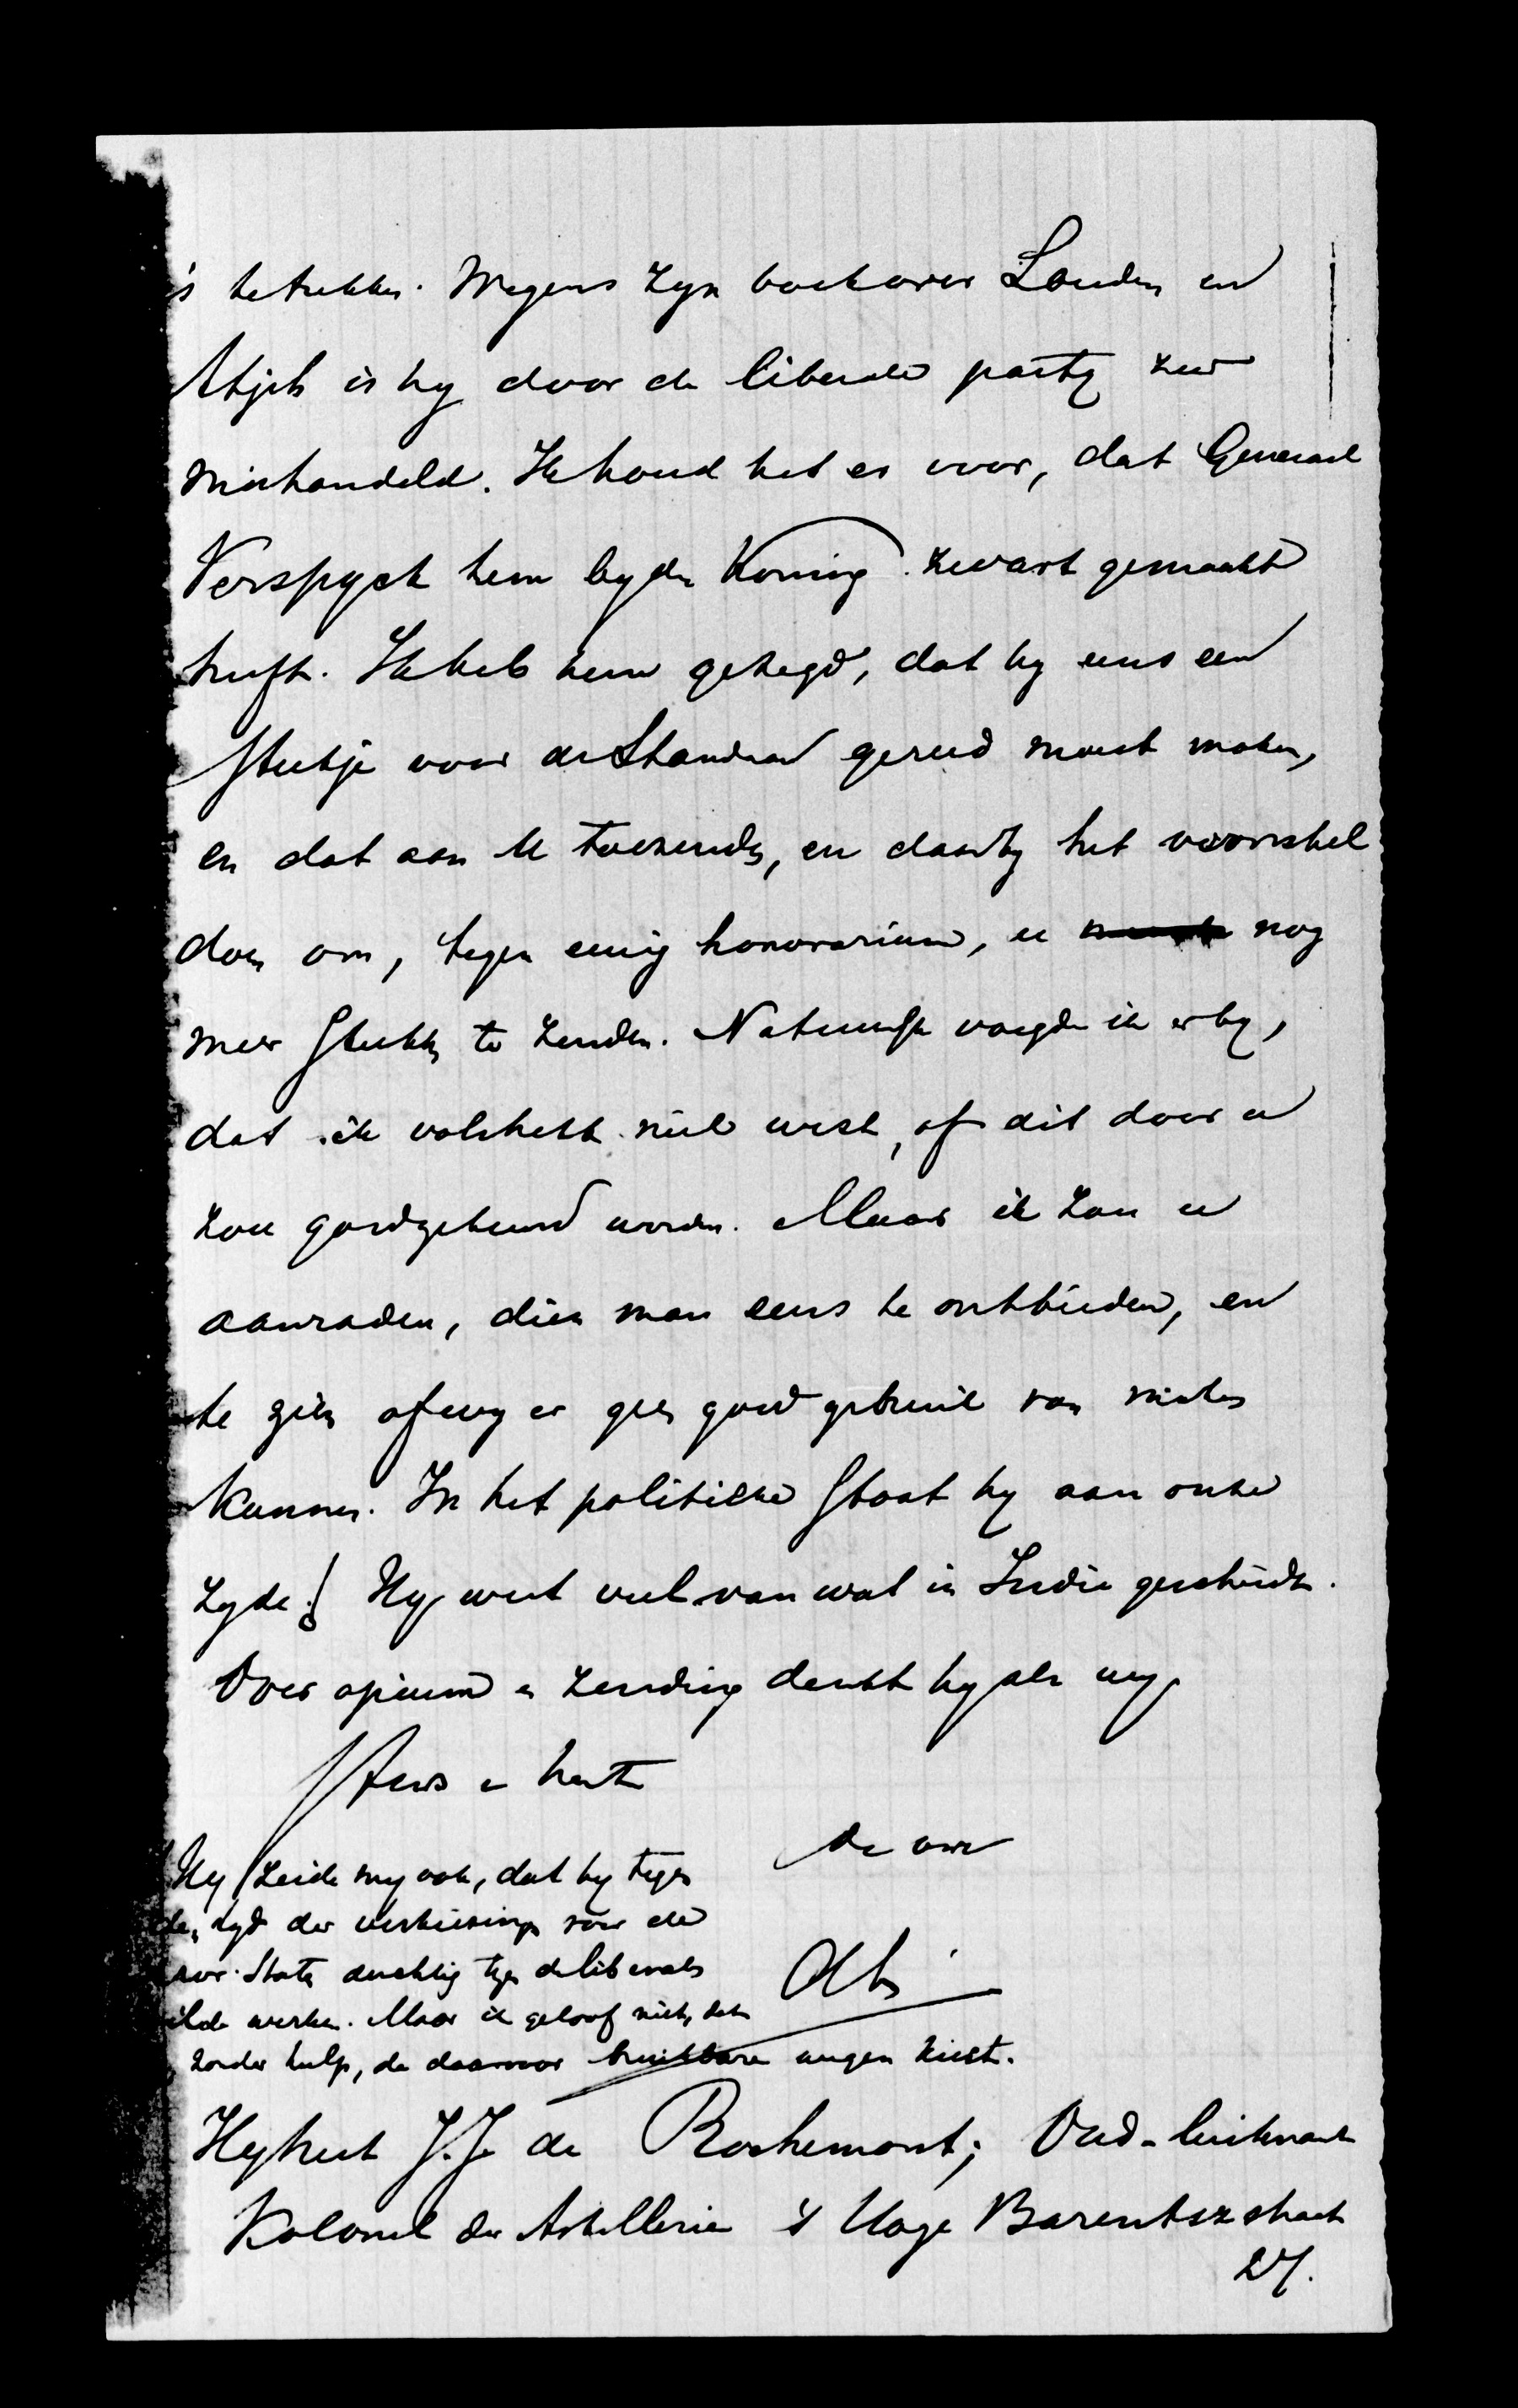 is betrokken. Wegens zyn boek over Loudon en
Atjeh is hy door de liberale party zeer
mishandeld. Ik houd het er voor, dat Generaal
Verspyck hem by den Koning zwart gemaakt
heeft. Ik heb hem gezegd, dat hy eens een
stukje voor de Standaard gereed moest maken,
en dat aan U toezenden, en daarby het voorstel
doen om, tegen eenig honorarium, u nog
meer stukken te zenden. Natuurlyk voegde ik erby,
dat ik volstrekt niet wist, of dit door u
zou goedgekeurd worden. Maar ik zou u
aanraden, dien man eens te ontbieden, en
te zien of wy er geen goed gebruik van maken
kunnen. In het politieke staat hy aan onze
zyde! Hy weet veel van wat in Indie geschiedt.
Over opium en zending denkt hy als wy.
Steeds en harte
de uwe
Hy zeide my ook, dat hy tegen
den tyd der verkiezingen voor de
Prov. Staten duchtig tegen de liberalen
wilde werken. Maar ik geloof niet, dat
zonder hulp, de daarvoor bruikbare wegen kiest.
Hy heet J.J. de Rochemont; Oud-luitenant
Kolonel der Artillerie 's Hage Barentszstraat
27.